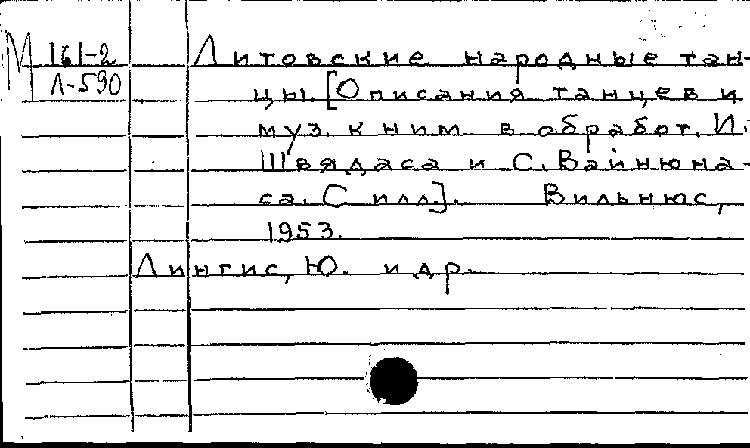 М 161-2
Л-590
Литовские народные тан-
цы. [Описания танцев и
муз. к ним в обработ. И.
Швядаса и С. Вайнюна-
са. С илл.]. Вильнюс,
1953.
Лингис, Ю. и др.